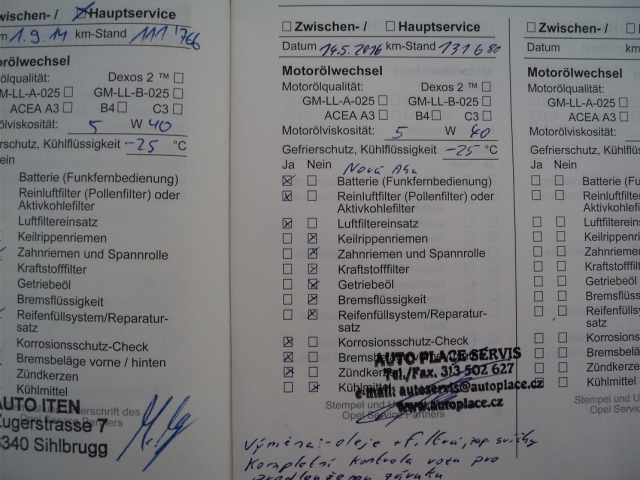 Zwischen- / Hauptservice
1.9.14 km-Stand 111'766
Dexos 2 ™
GM-LL-A-025 GM-LL-B-025
ACEA A3 B4 C3
5 W 40
Kühlflüssigkeit -25 °C
Batterie (Funkfernbedienung)
Reinluftfilter (Pollenfilter) oder
Aktivkohlefilter
Luftfiltereinsatz
Keilrippenriemen
Zahnriemen und Spannrolle
Kraftstofffilter
Getriebeöl
Bremsflüssigkeit
Reifenfüllsystem/Reparatur-
satz
Korrosionsschutz-Check
Bremsbeläge vorne / hinten
Zündkerzen
Kühlmittel
AUTO ITEN
Zugerstrasse 7
6340 Sihlbrugg
Zwischen- / Hauptservice
Datum 14.5.2016 km-Stand
Motorölwechsel
Motorölqualität: Dexos 2 ™
GM-LL-A-025 GM-LL-B-025
ACEA A3 B4 C3
Motorölviskosität: 5 W 40
Gefrierschutz, Kühlflüssigkeit -25 °C
Ja Nein Nová
Batterie (Funkfernbedienung)
Reinluftfilter (Pollenfilter) oder
Aktivkohlefilter
Luftfiltereinsatz
Keilrippenriemen
Zahnriemen und Spannrolle
Kraftstofffilter
Getriebeöl
Bremsflüssigkeit
Reifenfüllsystem/Reparatur-
satz
Korrosionsschutz-Check
Bremsbeläge
Zündkerzen
Kühlmittel
AUTO PLACE SERVIS
Tel./Fax. 313 502 627
e-mail: autoservis@autoplace.cz
www.autoplace.cz
Stempel und
Opel Service Partners
Výměna: oleje + filtrů, zap svíčky
Kompletní kontrola vozu pro
Zwischen- /
Datum km
Motorölwechsel
Motorölqualität:
GM-LL-A-025
ACEA A3
Motorölviskosität:
Gefrierschutz, Kühl
Ja Nein
Batterie (Fu
Reinluftfilter
Aktivkohlefilter
Luftfiltereinsatz
Keilrippenriemen
Zahnriemen
Kraftstofffilter
Getriebeöl
Bremsflüssigkeit
Reifenfüllsystem
satz
Korrosionsschutz
Bremsbeläge
Zündkerzen
Kühlmittel
Stempel und U
Opel Service